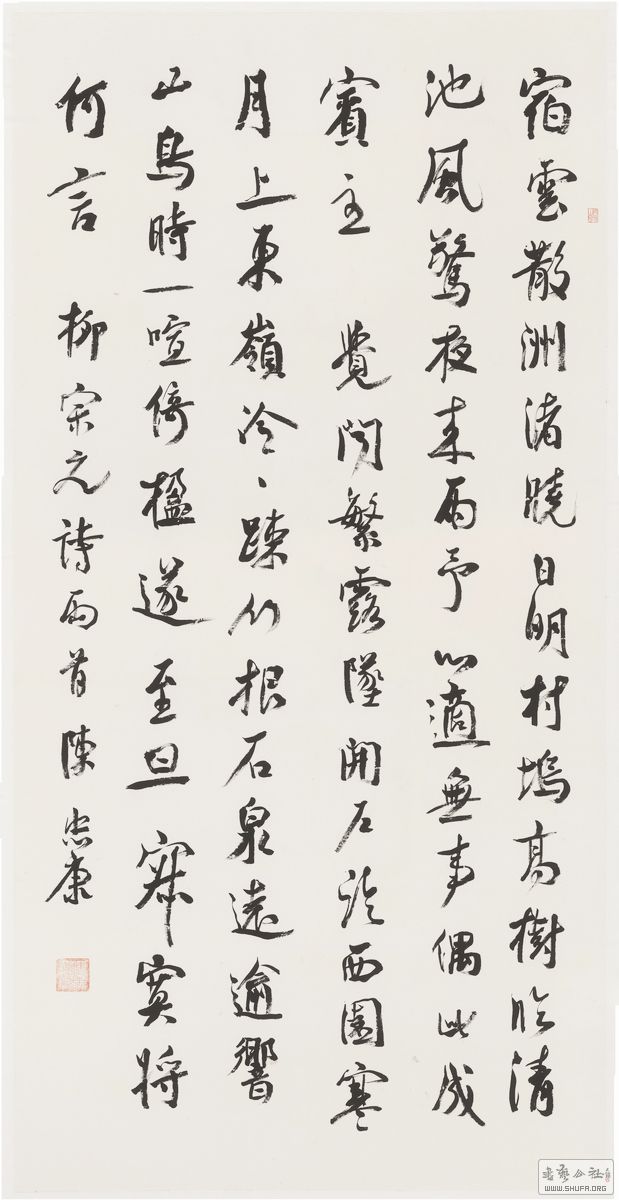 宿雲散洲渚曉日明村塢高樹臨清
池風驚夜来雨予心適無事偶此成
賓主 覺聞繁露墜開户臨西園寒
月上東嶺泠〻踈竹根石泉遠逾響
山鳥時一喧倚楹遂至旦寂寞將
何言 柳宗元詩兩首陳忠康
書藝公社
WWW.SHUFA.ORG